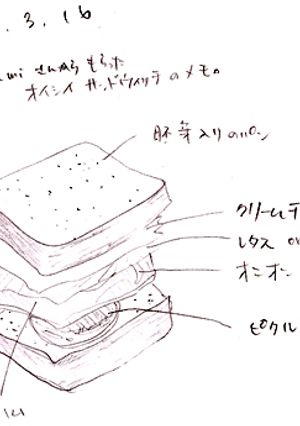 .3.16
mi さんからもらった
オイシイ サンドウィッチのメモ。
胚芽入りのパン
クリームチ
レタス or
オニオン
ピクル